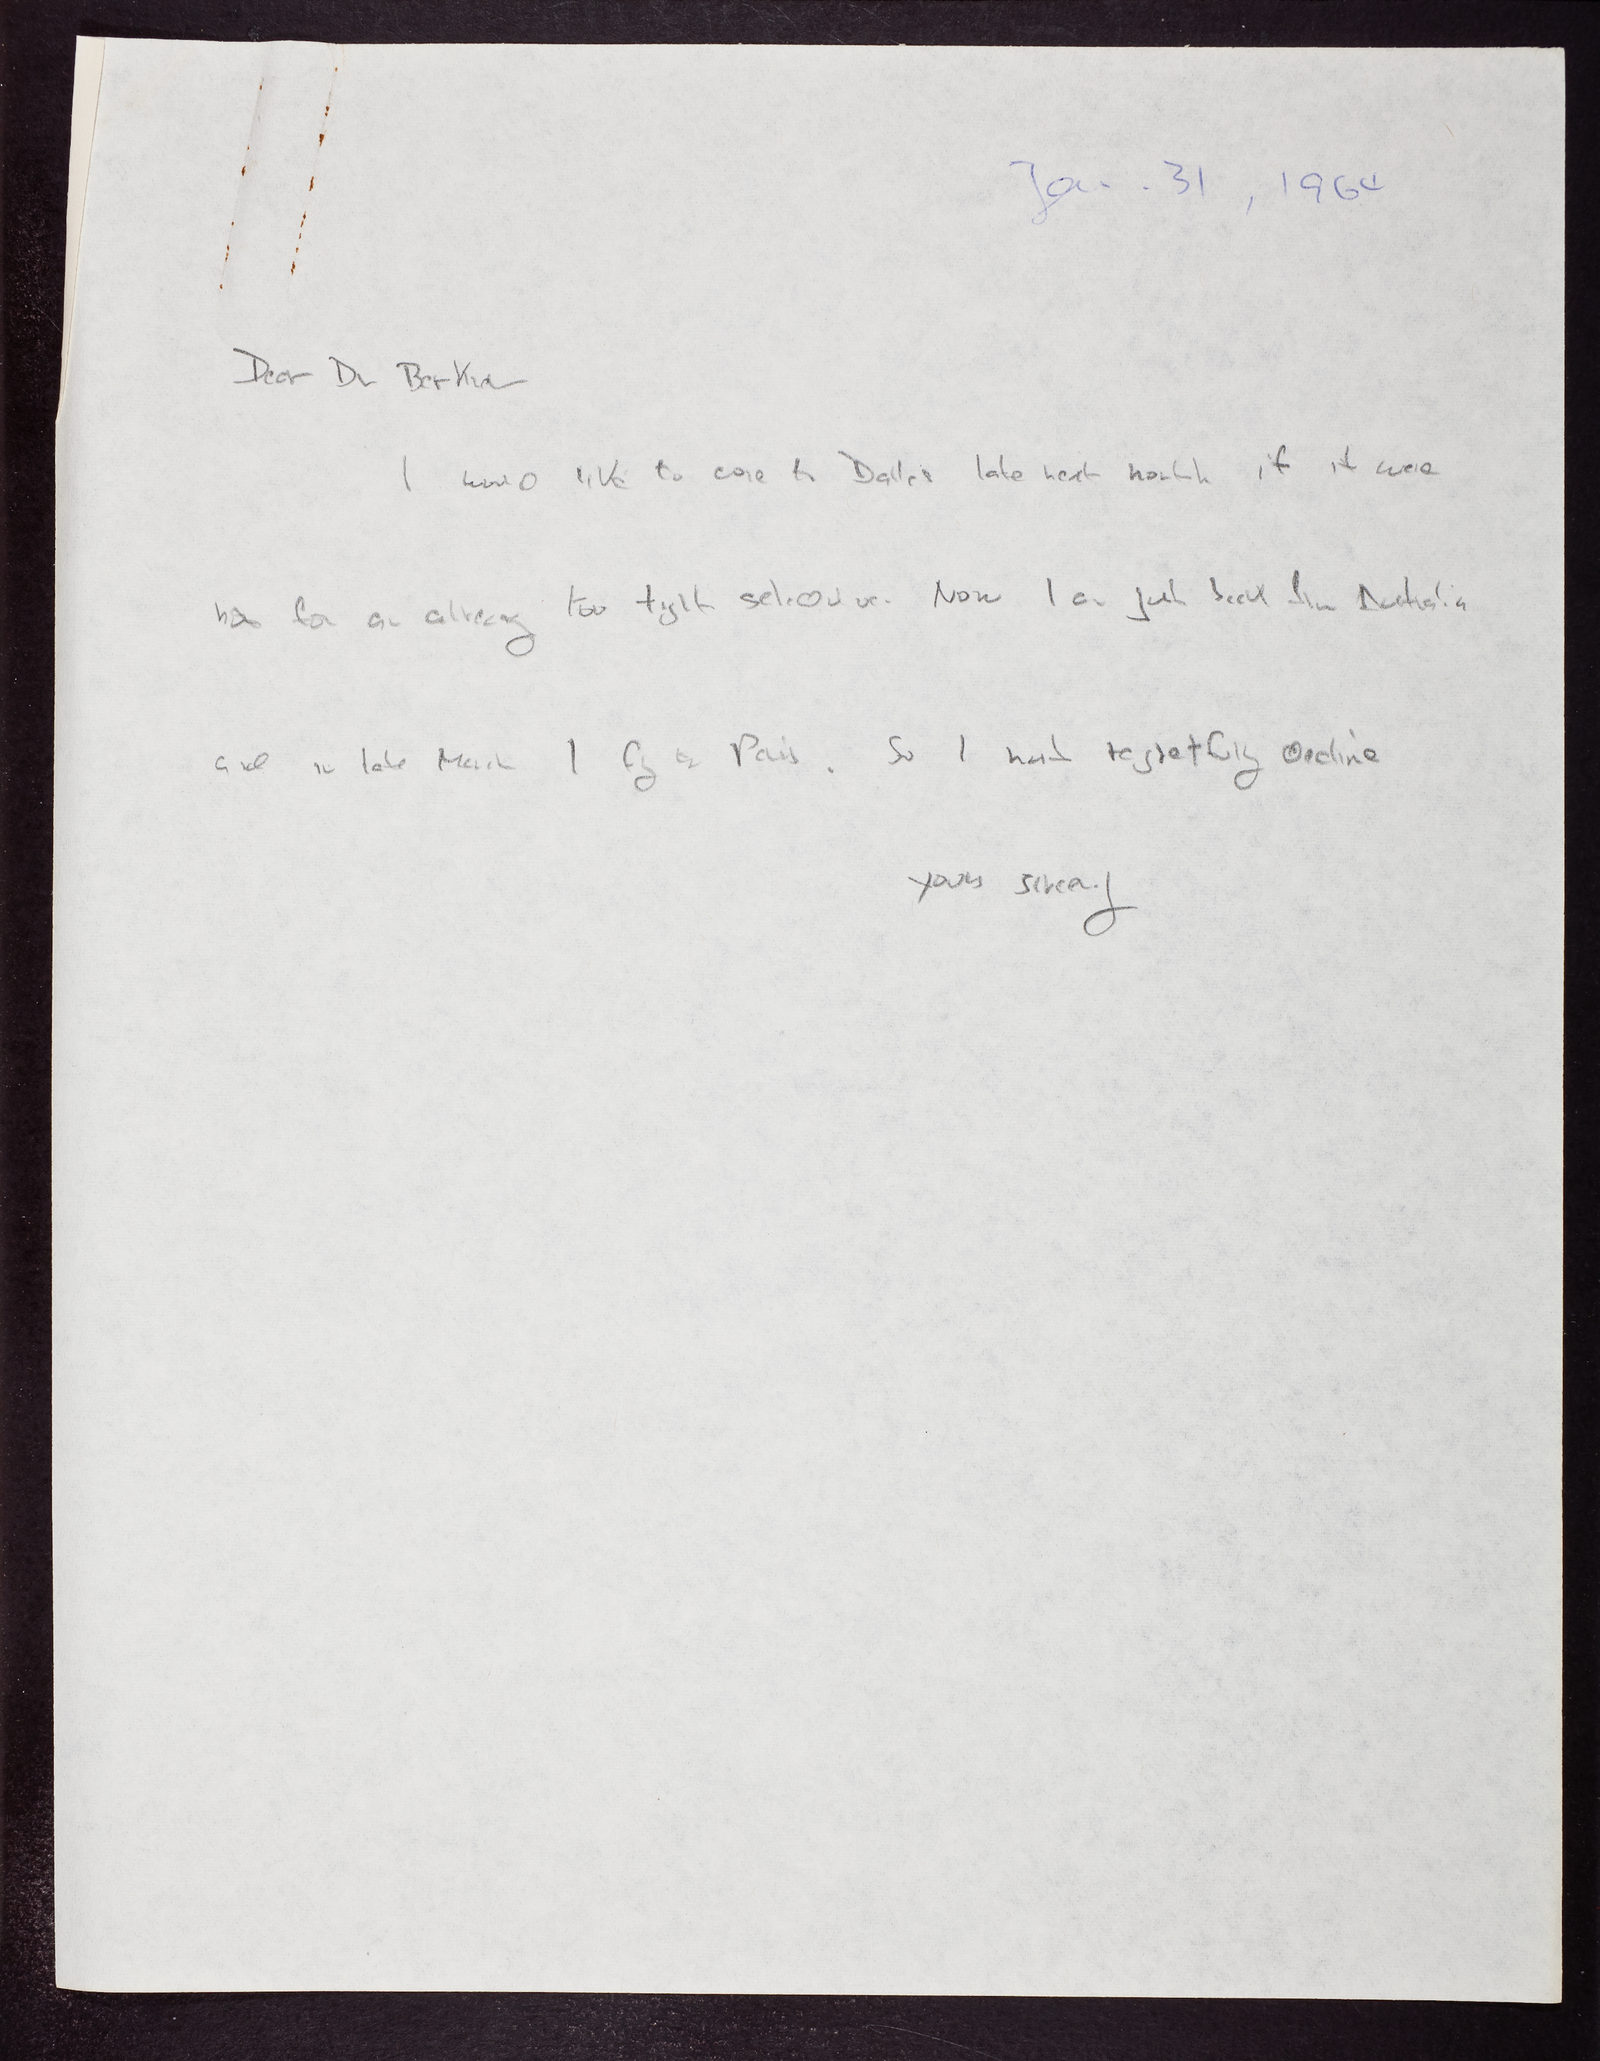 Jan. 31, 1964
Dear Dr
I would like to come to Dallas late next month if it were
not for an already too tight schedule. Now I am just back from Australia
and in late March I fly to Paris. So I must regretfully decline
Yours sincerely